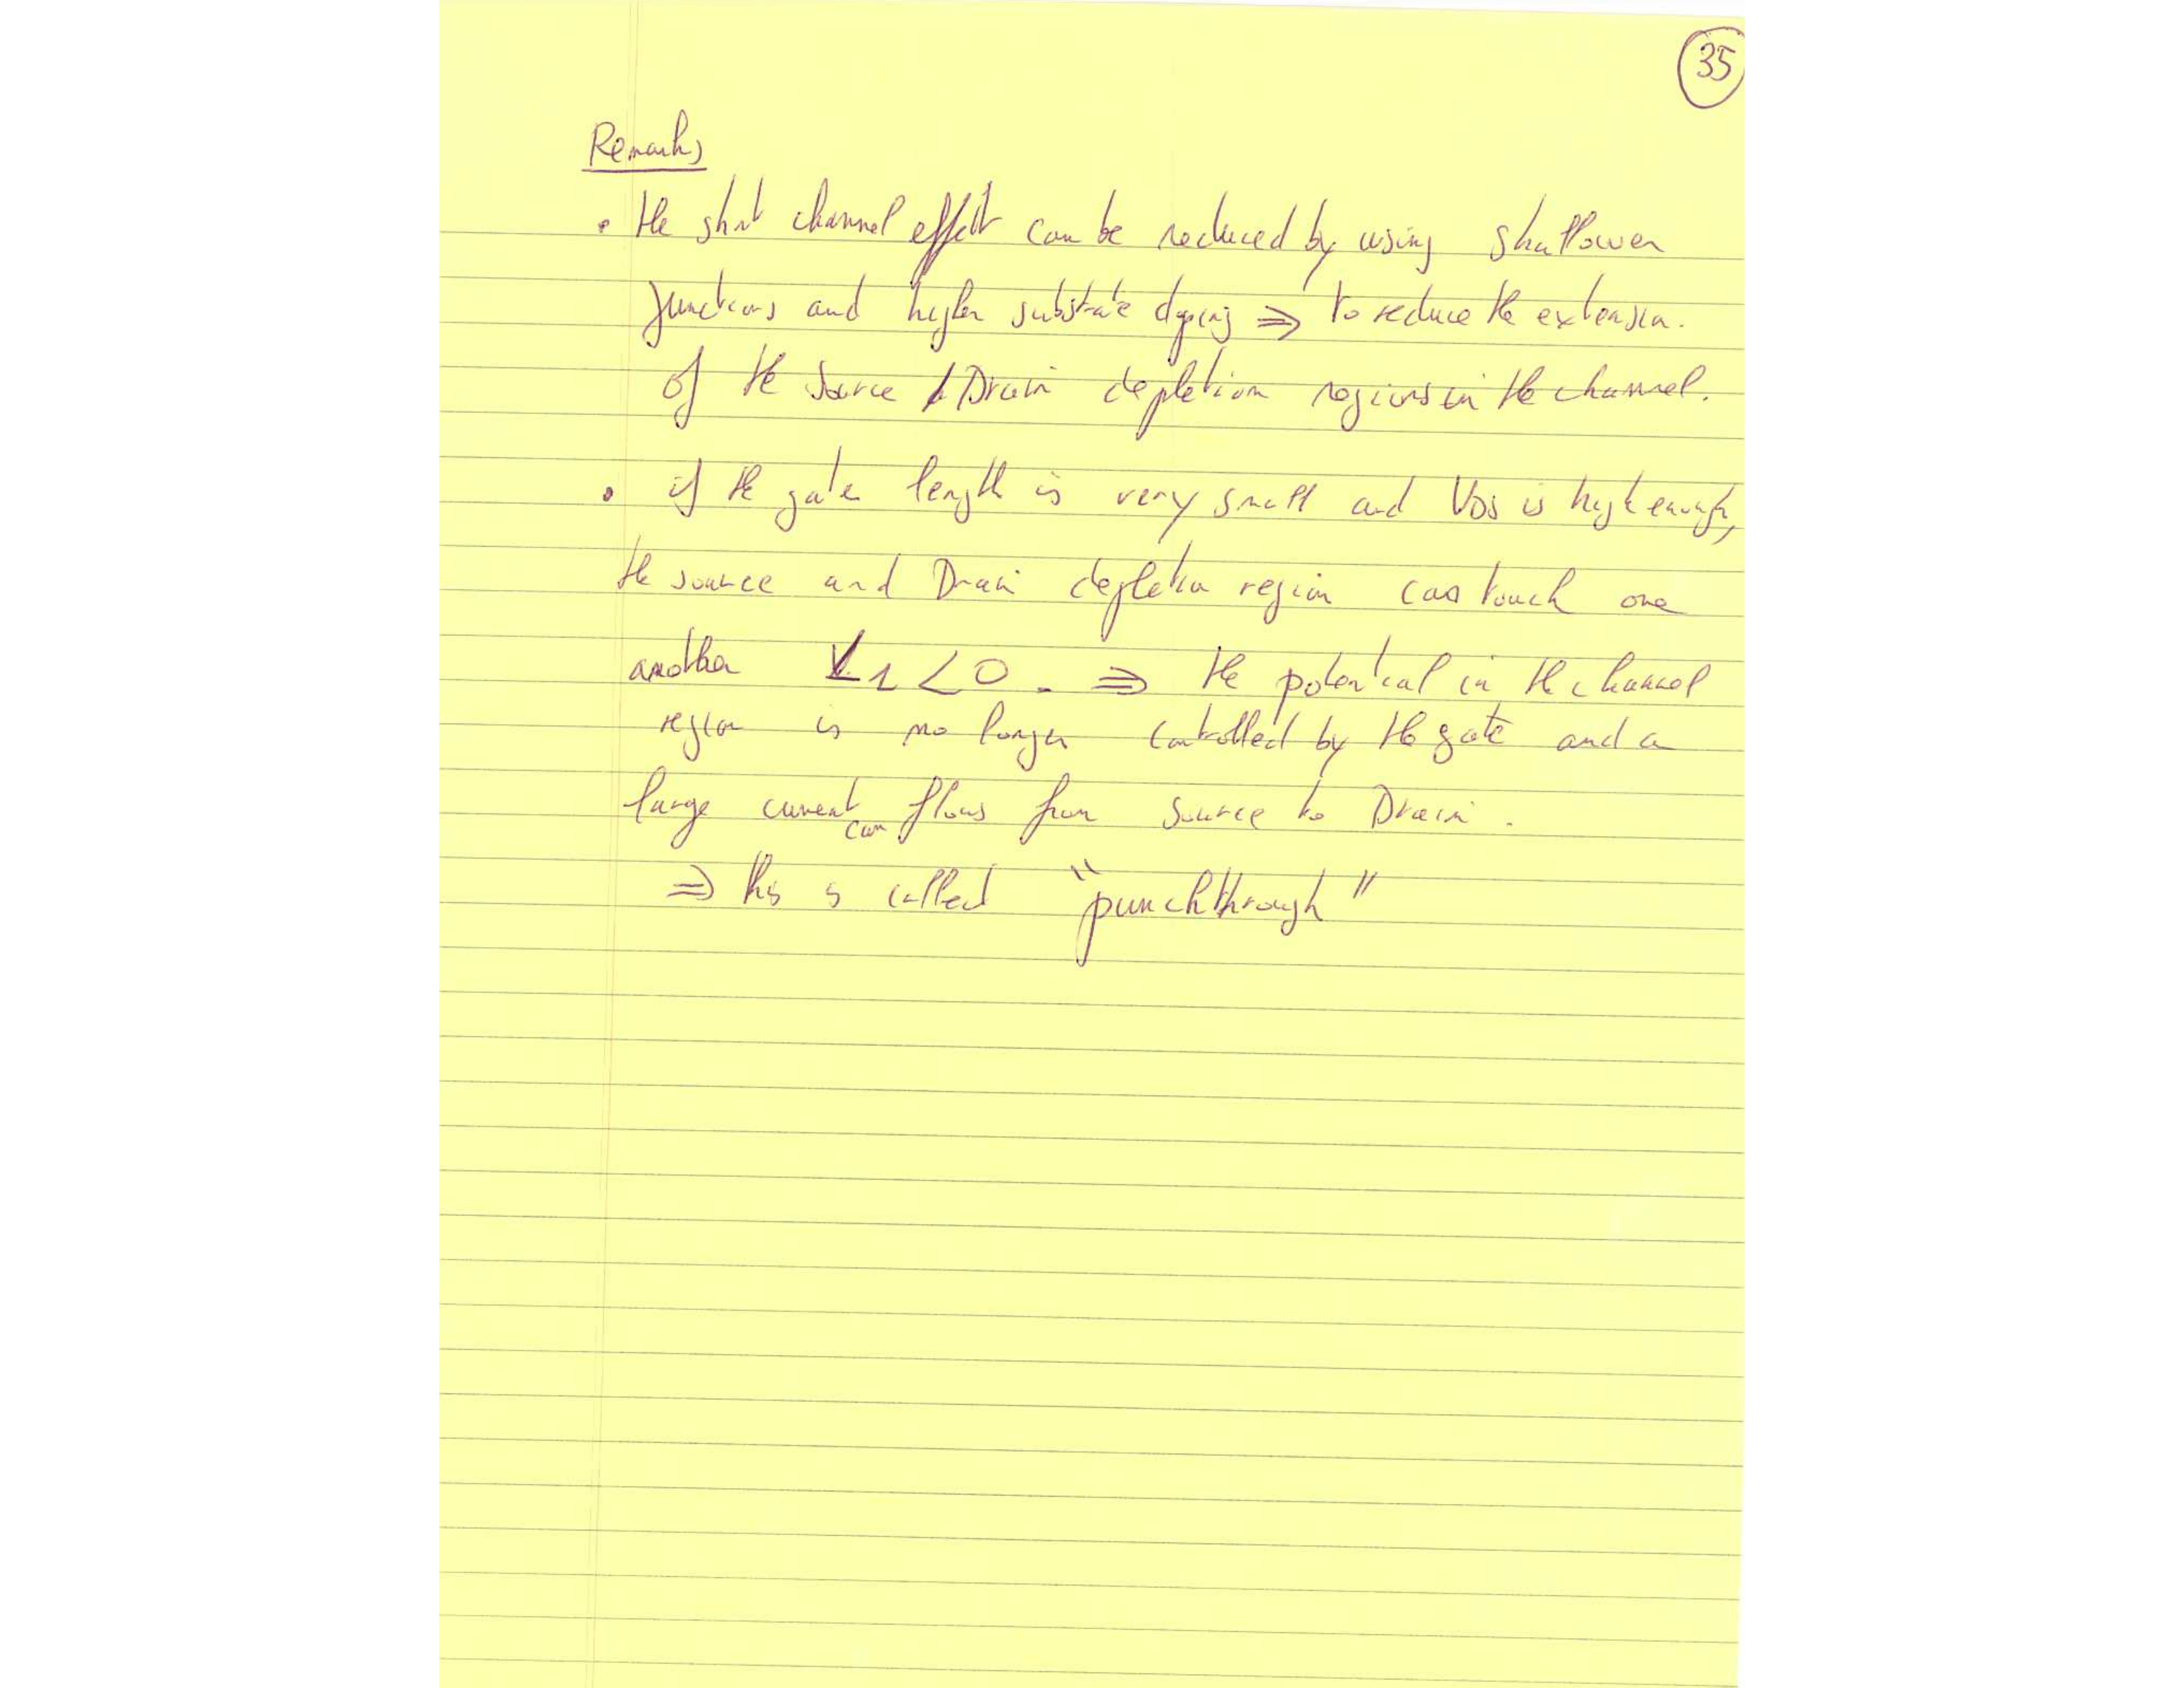 35
Remarks
• the short channel effect can be reduced by using shallower
junctions and higher substrate doping ⇒ to reduce the extension.
of the source / Drain depletion regions in the channel.
• if the gate length is very small and VDS is high enough,
the source and Drain depletion region can touch one
another L1 < 0. ⇒ the potential in the channel
region is no longer controlled by the gate and a
large current can flows from source to Drain.
⇒ this is called "punchthrough"